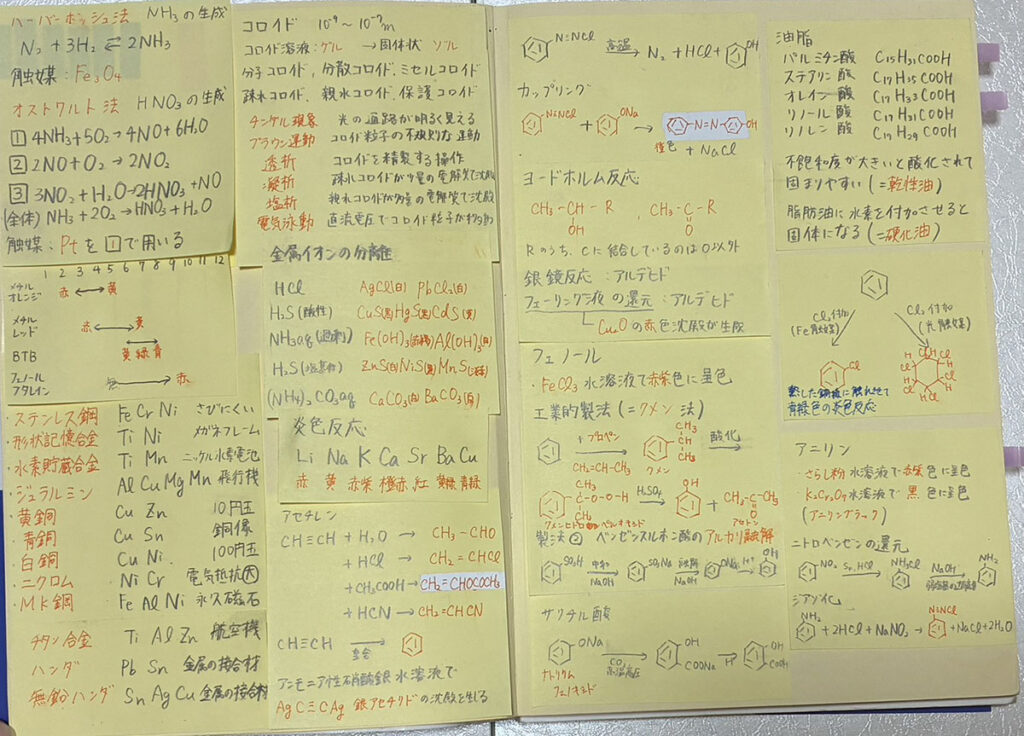 ハーバーボッシュ法 NH₃の生成
N₂ + 3H₂ ⇄ 2NH₃
触媒：Fe₃O₄
オストワルト法 HNO₃の生成
1 4NH₃+5O₂→4NO+6H₂O
2 2NO+O₂→2NO₂
3 3NO₂+H₂O→2HNO₃+NO
(全体) NH₃+2O₂→HNO₃+H₂O
触媒：Ptを1で用いる
1 2 3 4 5 6 7 8 9 10 11 12
メチルオレンジ 赤 ↔ 黄
メチルレッド 赤 ↔ 黄
BTB 黄 緑 青
フェノールフタレイン 無 → 赤
・ステンレス鋼 Fe Cr Ni さびにくい
・形状記憶合金 Ti Ni メガネフレーム
・水素貯蔵合金 Ti Mn ニッケル水素電池
・ジュラルミン Al Cu Mg Mn 飛行機
・黄銅 Cu Zn 10円玉
・青銅 Cu Sn 銅像
・白銅 Cu Ni 100円玉
・ニクロム Ni Cr 電気抵抗大
・MK鋼 Fe Al Ni 永久磁石
チタン合金 Ti Al Zn 航空機
ハンダ Pb Sn 金属の接合材
無鉛ハンダ Sn Ag Cu 金属の接合材
コロイド 10⁻⁹〜10⁻⁷m
コロイド溶液：ゲル → 固体状 ゾル
分子コロイド, 分散コロイド, ミセルコロイド
疎水コロイド, 親水コロイド, 保護コロイド
チンダル現象 光の通路が明るく見える
ブラウン運動 コロイド粒子の不規則な運動
透析 コロイドを精製する操作
凝析 疎水コロイドが少量の電解質で沈殿
塩析 親水コロイドが多量の電解質で沈殿
電気泳動 直流電圧でコロイド粒子が移動
金属イオンの分離
HCl AgCl(白) PbCl₂(白)
H₂S (酸性) CuS(黒) HgS(黒) CdS(黄)
NH₃aq (過剰) Fe(OH)₃(赤褐) Al(OH)₃(白)
H₂S (塩基性) ZnS(白) NiS(黒) MnS(淡桃)
(NH₄)₂CO₃aq CaCO₃(白) BaCO₃(白)
炎色反応
Li Na K Ca Sr Ba Cu
赤 黄 赤紫 橙赤 紅 黄緑 青緑
アセチレン
CH≡CH + H₂O → CH₃-CHO
+ HCl → CH₂=CHCl
+CH₃COOH→ CH₂=CHOCOCH₃
+ HCN → CH₂=CHCN
CH≡CH 重合 →
アンモニア性硝酸銀水溶液で
AgC≡CAg 銀アセチリドの沈殿を生じる
N≡NCl 高温 → N₂ + HCl + OH
カップリング
N≡NCl + ONa → -N=N- OH
橙色 + NaCl
ヨードホルム反応
CH₃-CH-R , CH₃-C-R
OH O
Rのうち、Cに結合しているのはO以外
銀鏡反応：アルデヒド
フェーリング液の還元：アルデヒド
Cu₂Oの赤色沈殿が生成
フェノール
・FeCl₃水溶液で赤紫色に呈色
工業的製法(=クメン法)
+プロペン → CH₃ CH CH₃ 酸化 →
CH₂=CH-CH₃ クメン
CH₃ C-O-O-H CH₃ H₂SO₄ → OH + CH₃-C-CH₃ O
クメンヒドロペルオキシド アセトン
製法2 ベンゼンスルホン酸のアルカリ融解
SO₃H 中和 NaOH → SO₃Na 融解 NaOH → ONa H⁺ → OH
サリチル酸
ONa CO₂ 高温高圧 → OH COONa H⁺ → OH COOH
ナトリウムフェノキシド
油脂
パルミチン酸 C₁₅H₃₁COOH
ステアリン酸 C₁₇H₃₅COOH
オレイン酸 C₁₇H₃₃COOH
リノール酸 C₁₇H₃₁COOH
リノレン酸 C₁₇H₂₉COOH
不飽和度が大きいと酸化されて
固まりやすい(=乾性油)
脂肪油に水素を付加させると
固体になる(=硬化油)
Cl₂付加 (Fe触媒) Cl₂付加 (光触媒)
Cl
H Cl H Cl H Cl H Cl H Cl H Cl
熱した銅線に触れさせて
青緑色の炎色反応
アニリン
・さらし粉水溶液で赤紫色に呈色
・K₂Cr₂O₇水溶液で黒色に呈色
(アニリンブラック)
ニトロベンゼンの還元
NO₂ Sn, HCl → NH₃Cl NaOH → NH₂
ジアゾ化
NH₂ + 2HCl + NaNO₂ → N≡NCl + NaCl+2H₂O